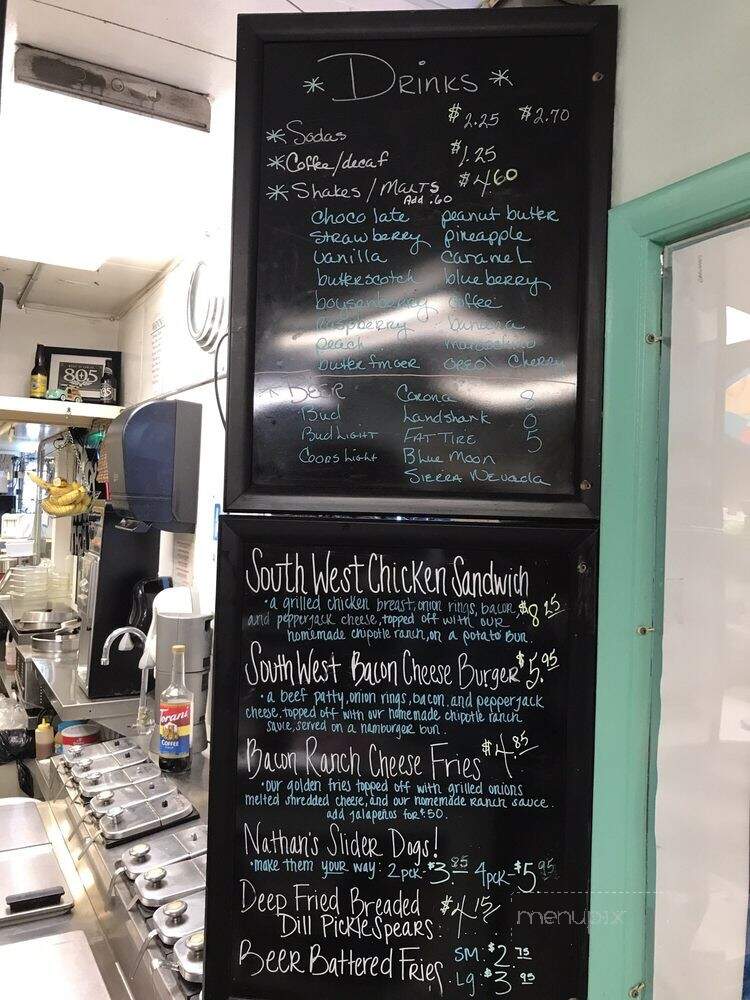 * Drinks *
* Sodas $2.25 $2.70
* Coffee/decaf $1.25
* Shakes / Malts $4.60
Add .60
chocolate peanut butter
Strawberry pineapple
vanilla caramel
butterscotch blueberry
boysenberry coffee
raspberry banana
peach maraschino
butterfinger OREO Cherry
* BEER Corona
Bud Landshark
Bud Light FAT TIRE
Coors Light Blue Moon
Sierra Nevada
805
South West Chicken Sandwich
• a grilled chicken breast, onion rings, bacon,
and pepperjack cheese, topped off with our
homemade chipotle ranch, on a potato bun.
South West Bacon Cheese Burger $5.95
• a beef patty, onion rings, bacon, and pepperjack
cheese, topped off with our homemade chipotle ranch
sauce, served on a hamburger bun.
Bacon Ranch Cheese Fries $4.85
• our golden fries topped off with grilled onions
melted shredded cheese, and our homemade ranch sauce.
add jalapeños for $.50.
Nathan's Slider Dogs!
• make them your way: 2pck-$3.85 4pck-$5.95
Deep Fried Breaded $4.15
Dill Pickle Spears:
Beer Battered Fries. SM: $2.75
Lg: $3.95
Torani
COFFEE
menupix